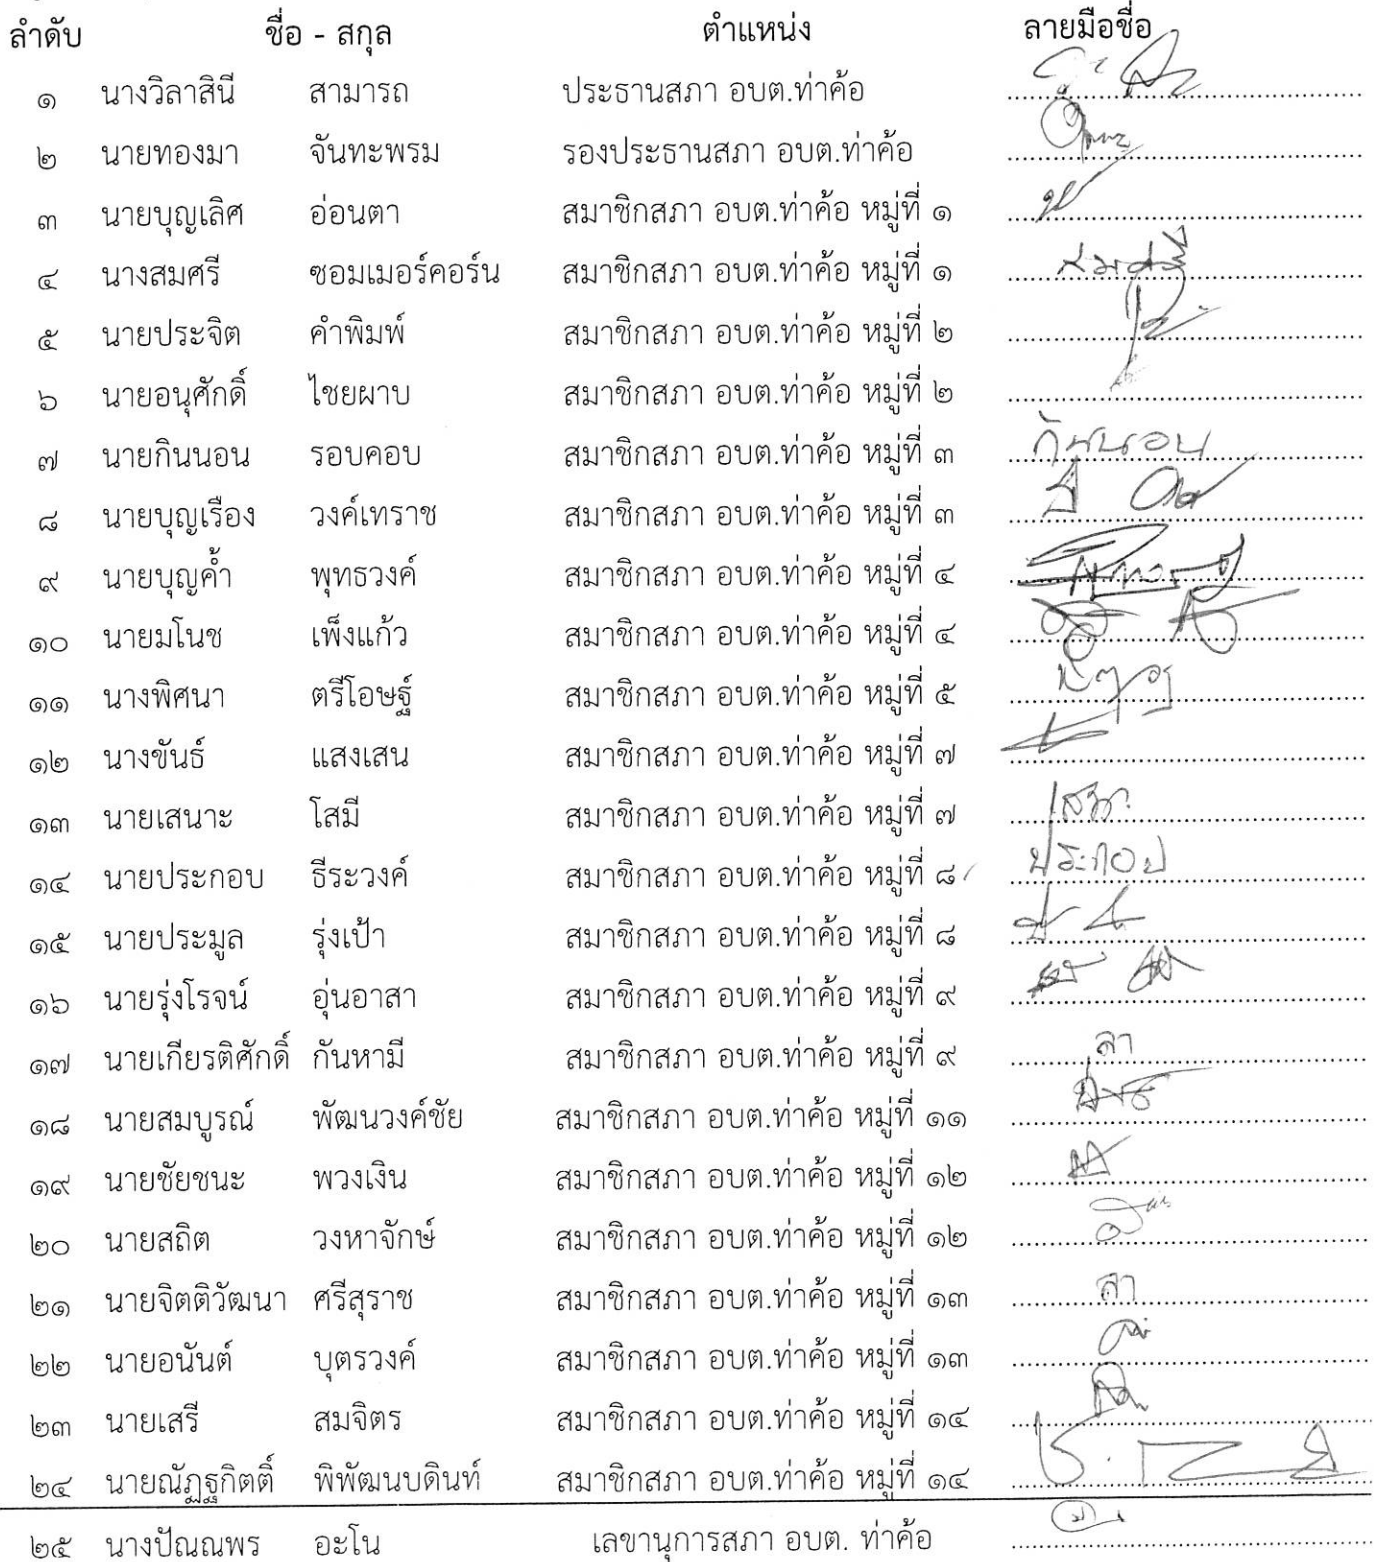 ลำดับ ชื่อ - สกุล ตำแหน่ง ลายมือชื่อ
๑ นางวิลาสินี สามารถ ประธานสภา อบต.ท่าค้อ
๒ นายทองมา จันทะพรม รองประธานสภา อบต.ท่าค้อ
๓ นายบุญเลิศ อ่อนตา สมาชิกสภา อบต.ท่าค้อ หมู่ที่ ๑
๔ นางสมศรี ซอมเมอร์คอร์น สมาชิกสภา อบต.ท่าค้อ หมู่ที่ ๑ สมศรี
๕ นายประจิต คำพิมพ์ สมาชิกสภา อบต.ท่าค้อ หมู่ที่ ๒
๖ นายอนุศักดิ์ ไชยผาบ สมาชิกสภา อบต.ท่าค้อ หมู่ที่ ๒
๗ นายกินนอน รอบคอบ สมาชิกสภา อบต.ท่าค้อ หมู่ที่ ๓ กินนอน
๘ นายบุญเรือง วงค์เทราช สมาชิกสภา อบต.ท่าค้อ หมู่ที่ ๓
๙ นายบุญค้ำ พุทธวงค์ สมาชิกสภา อบต.ท่าค้อ หมู่ที่ ๔
๑๐ นายมโนช เพ็งแก้ว สมาชิกสภา อบต.ท่าค้อ หมู่ที่ ๔
๑๑ นางพิศนา ตรีโอษฐ์ สมาชิกสภา อบต.ท่าค้อ หมู่ที่ ๕
๑๒ นางขันธ์ แสงเสน สมาชิกสภา อบต.ท่าค้อ หมู่ที่ ๗
๑๓ นายเสนาะ โสมี สมาชิกสภา อบต.ท่าค้อ หมู่ที่ ๗
๑๔ นายประกอบ ธีระวงค์ สมาชิกสภา อบต.ท่าค้อ หมู่ที่ ๘ ประกอบ
๑๕ นายประมูล รุ่งเป้า สมาชิกสภา อบต.ท่าค้อ หมู่ที่ ๘
๑๖ นายรุ่งโรจน์ อุ่นอาสา สมาชิกสภา อบต.ท่าค้อ หมู่ที่ ๙
๑๗ นายเกียรติศักดิ์ กันหามี สมาชิกสภา อบต.ท่าค้อ หมู่ที่ ๙ ลา
๑๘ นายสมบูรณ์ พัฒนวงค์ชัย สมาชิกสภา อบต.ท่าค้อ หมู่ที่ ๑๑
๑๙ นายชัยชนะ พวงเงิน สมาชิกสภา อบต.ท่าค้อ หมู่ที่ ๑๒
๒๐ นายสถิต วงหาจักษ์ สมาชิกสภา อบต.ท่าค้อ หมู่ที่ ๑๒
๒๑ นายจิตติวัฒนา ศรีสุราช สมาชิกสภา อบต.ท่าค้อ หมู่ที่ ๑๓ ลา
๒๒ นายอนันต์ บุตรวงค์ สมาชิกสภา อบต.ท่าค้อ หมู่ที่ ๑๓
๒๓ นายเสรี สมจิตร สมาชิกสภา อบต.ท่าค้อ หมู่ที่ ๑๔
๒๔ นายณัฏฐกิตติ์ พิพัฒนบดินท์ สมาชิกสภา อบต.ท่าค้อ หมู่ที่ ๑๔
๒๕ นางปัณณพร อะโน เลขานุการสภา อบต. ท่าค้อ